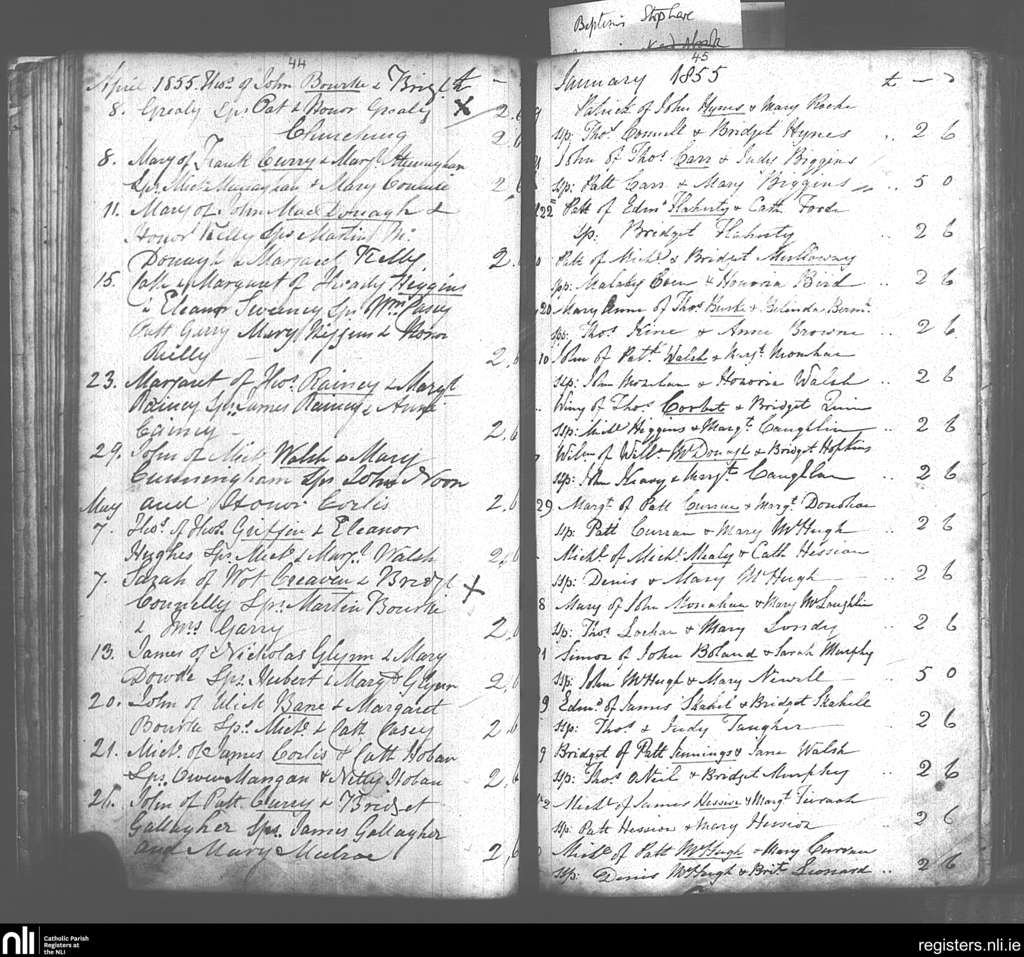 Baptisms Shrule
44
April 1855. Thos. of John Bourke & Bridgt
8. Grealy Sps Pat & Honor Grealy X 2.6
Churching 2.6
8. Mary of Frank Curry & Margt
Sps. Mick & Mary 2.6
11. Mary of John MacDonagh &
Honor Kelly Sps Martin Mc
Donagh & Margaret Kelly 2.6
15. Patk & Margaret of Thady Higgins
& Eleanor Sweeney Sps Wm Casey
Patt Garry Mary Higgins & Honor
Reilly 2.6
23. Margaret of Thos. Rainey & Margt
Rainey Sps. James Rainey & Anne
2.6
29. John of Mick Walsh & Mary
Cunningham Sps John Noon
and Honor Corlis 2.6
May
7 Thos. of Thos. Griffin & Eleanor
Hughes Sps. Mick. & Margt. Walsh 2.6
7. Sarah of Wat Creaven & Bridgt X
Connelly Sps. Martin Bourke
& Mrs Garry 2.6
13. James of Nickolas Glynn & Mary
Dowde Sps. Hubert & Margt Glynn 2.6
20. John of Ulick Bane & Margaret
Bourke Sps. Mick. & Cath Casey 2.6
21. Mick. of James Corlis & Cath Hoban
Sps. Owen Mangan & Nelly Hoban 2.6
26. John of Patt Curry & Bridget
Gallagher Sps. James Gallagher
and Mary Mulroe 2.6
45
January 1855 £
9 Patrick of John Hynes & Mary
sp: Thos. Connell & Bridget Hynes .. 2 6
John of Thos. Carr & Judy Biggins
sp: Patt Carr & Mary Biggins .. 5 0
22 Patt of Edmd Flaherty & Cath Forde
sp: Bridget Flaherty 2 6
Patt of Michl. & Bridget Mullowney
sp: Malaky Coen & Honora Bird .. 2 6
20 Mary Anne of Thos. Burke & Belinda
sp: Thos. Kine & Anne Browne .. 2 6
10 John of Patt. Walsh & Margt. Monahan
sp: John Monahan & Honoria Walsh .. 2 6
Winy of Thos. Corbet & Bridget Quin
sp: Michl Higgins & Margt. Caughlin .. 2 6
Wilm of Willm McDonagh & Bridget Hopkins
sp: John & Margt Caughlan .. 2 6
29 Margt. of Patt Curran & Margt. Donohoe
sp: Patt Curran & Mary McHugh .. 2 6
Michl. of Michl. Mealy & Cath Hession
sp: Denis & Mary McHugh .. 2 6
8 Mary of John Monahan & Mary McLaughlin
sp: Thos. & Mary .. 2 6
21 Simon of John Boland & Sarah Murphy
sp: John McHugh & Mary Newell 5 0
9 Edmd. of James Skahil & Bridget Skahill
sp: Thos. & Judy Taugher .. 2 6
9 Bridget of Patt Jennings & Jane Walsh
sp: Thos. ONeil & Bridget Murphy .. 2 6
Michl of James Hession & Margt
sp: Patt Hession & Mary Hession .. 2 6
Michl. of Patt McHugh & Mary Curran
sp: Denis McHugh & Brit. Leonard .. 2 6
nli Catholic Parish Registers at the NLI
registers.nli.ie